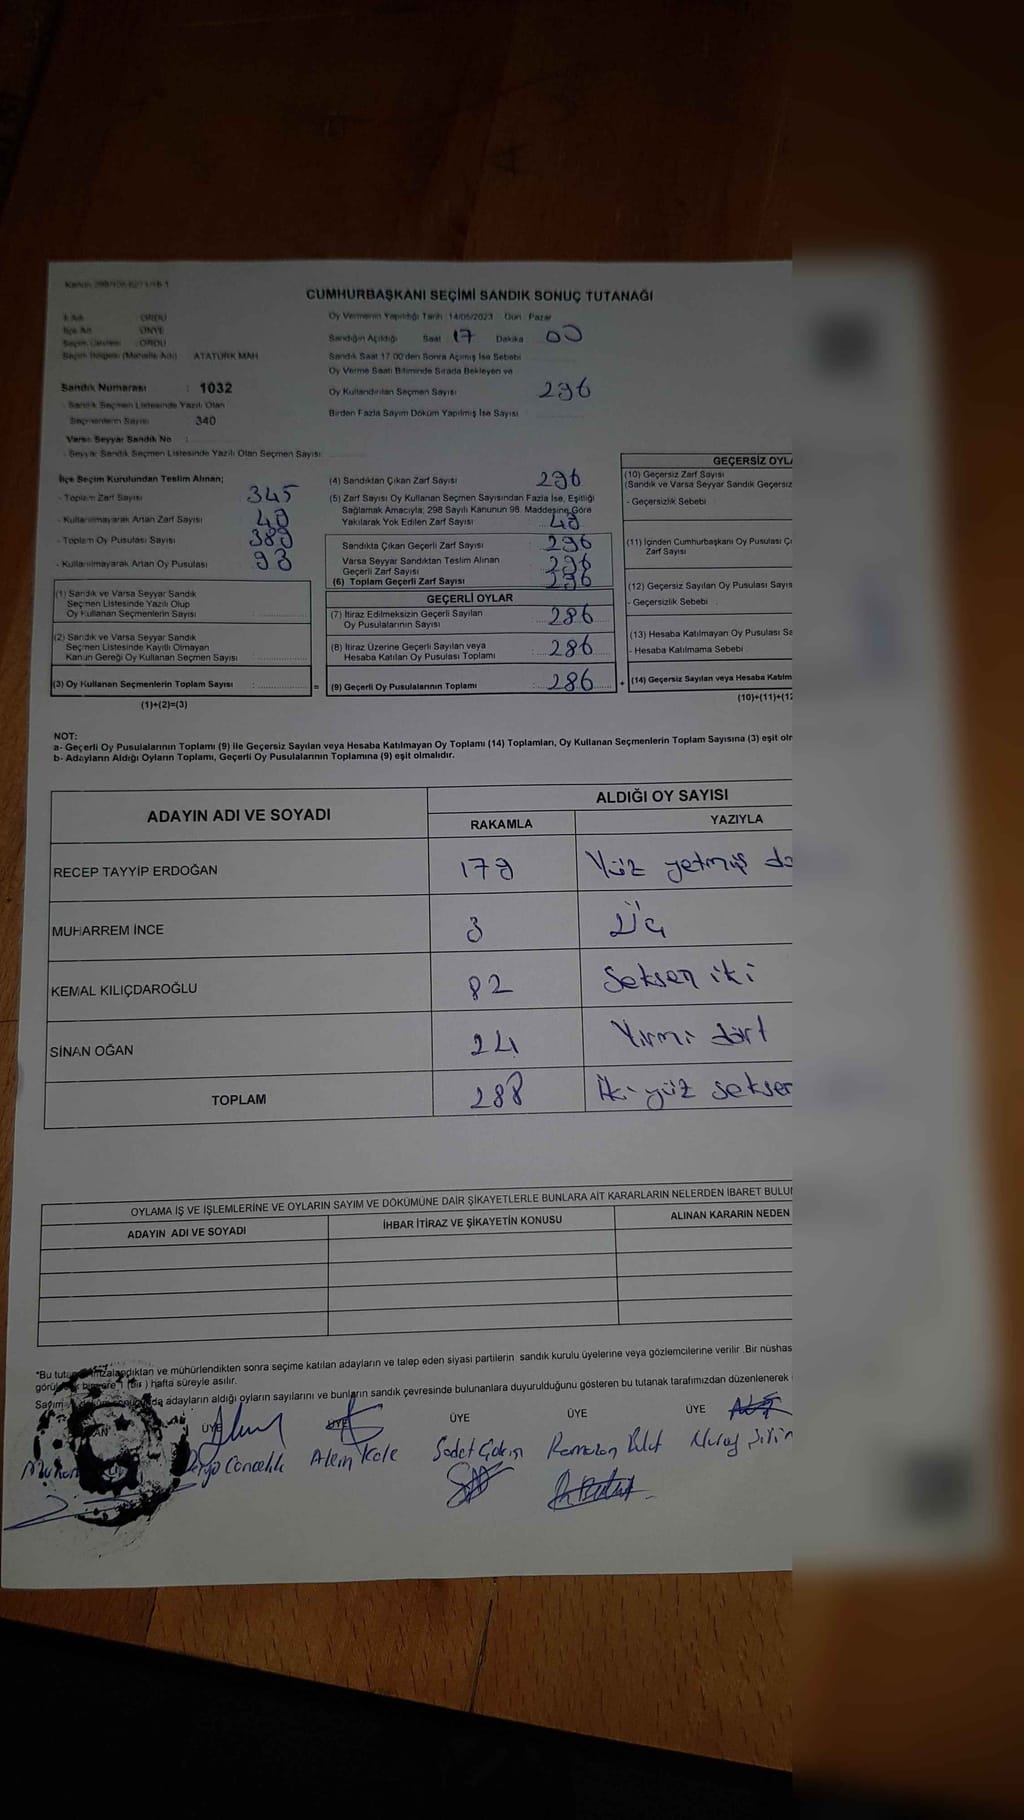 CUMHURBAŞKANI SEÇİMİ SANDIK SONUÇ TUTANAĞI
İl Adı : ORDU
İlçe Adı : ÜNYE
Seçim Çevresi : ORDU
Seçim Bölgesi (Mahalle Adı) : ATATÜRK MAH
Sandık Numarası : 1032
- Sandık Seçmen Listesinde Yazılı Olan
Seçmenlerin Sayısı 340
Varsa Seyyar Sandık No :
- Seyyar Sandık Seçmen Listesinde Yazılı Olan Seçmen Sayısı:
Oy Vermenin Yapıldığı Tarih :14/05/2023 Gün : Pazar
Sandığın Açıldığı Saat 17 Dakika 00
Sandık Saat 17.00'den Sonra Açılmış İse Sebebi
Oy Verme Saati Bitiminde Sırada Bekleyen ve
Oy Kullandırılan Seçmen Sayısı 296
Birden Fazla Sayım Döküm Yapılmış İse Sayısı
İlçe Seçim Kurulundan Teslim Alınan;
- Toplam Zarf Sayısı : 345
- Kullanılmayarak Artan Zarf Sayısı : 49
- Toplam Oy Pusulası Sayısı : 389
- Kullanılmayarak Artan Oy Pusulası : 93
(1) Sandık ve Varsa Seyyar Sandık
Seçmen Listesinde Yazılı Olup
Oy Kullanan Seçmenlerin Sayısı :
(2) Sandık ve Varsa Seyyar Sandık
Seçmen Listesinde Kayıtlı Olmayan
Kanun Gereği Oy Kullanan Seçmen Sayısı :
(3) Oy Kullanan Seçmenlerin Toplam Sayısı : =
(1)+(2)=(3)
(4) Sandıktan Çıkan Zarf Sayısı 296
(5) Zarf Sayısı Oy Kullanan Seçmen Sayısından Fazla İse, Eşitliği
Sağlamak Amacıyla; 298 Sayılı Kanunun 98. Maddesine Göre
Yakılarak Yok Edilen Zarf Sayısı : 49
Sandıkta Çıkan Geçerli Zarf Sayısı : 296
Varsa Seyyar Sandıktan Teslim Alınan
Geçerli Zarf Sayısı : 296
(6) Toplam Geçerli Zarf Sayısı : 296
GEÇERLİ OYLAR
(7) İtiraz Edilmeksizin Geçerli Sayılan
Oy Pusulalarının Sayısı : 286
(8) İtiraz Üzerine Geçerli Sayılan veya
Hesaba Katılan Oy Pusulası Toplamı : 286
(9) Geçerli Oy Pusulalarının Toplamı : 286 +
GEÇERSİZ OYLA
(10) Geçersiz Zarf Sayısı
(Sandık ve Varsa Seyyar Sandık Geçersiz
- Geçersizlik Sebebi :
(11) İçinden Cumhurbaşkanı Oy Pusulası Ç
Zarf Sayısı
(12) Geçersiz Sayılan Oy Pusulası Sayıs
- Geçersizlik Sebebi :
(13) Hesaba Katılmayan Oy Pusulası Sa
- Hesaba Katılmama Sebebi
(14) Geçersiz Sayılan veya Hesaba Katılm
(10)+(11)+(12
NOT:
a- Geçerli Oy Pusulalarının Toplamı (9) ile Geçersiz Sayılan veya Hesaba Katılmayan Oy Toplamı (14) Toplamları, Oy Kullanan Seçmenlerin Toplam Sayısına (3) eşit olr
b- Adayların Aldığı Oyların Toplamı, Geçerli Oy Pusulalarının Toplamına (9) eşit olmalıdır.
ADAYIN ADI VE SOYADI ALDIĞI OY SAYISI
RAKAMLA YAZIYLA
RECEP TAYYİP ERDOĞAN 179 Yüz yetmiş do
MUHARREM İNCE 3 Üç
KEMAL KILIÇDAROĞLU 82 Seksen iki
SİNAN OĞAN 24 Yirmi dört
TOPLAM 288 İki yüz seksen
OYLAMA İŞ VE İŞLEMLERİNE VE OYLARIN SAYIM VE DÖKÜMÜNE DAİR ŞİKAYETLERLE BUNLARA AİT KARARLARIN NELERDEN İBARET BULU
ADAYIN ADI VE SOYADI İHBAR İTİRAZ VE ŞİKAYETİN KONUSU ALINAN KARARIN NEDEN
"Bu imzalandıktan ve mühürlendikten sonra seçime katılan adayların ve talep eden siyasi partilerin sandık kurulu üyelerine veya gözlemcilerine verilir .Bir nüshas
hafta süreyle asılır.
adayların aldığı oyların sayılarını ve bunların sandık çevresinde bulunanlara duyurulduğunu gösteren bu tutanak tarafımızdan düzenlenerek
ÜYE ÜYE ÜYE ÜYE ÜYE
Ramazan